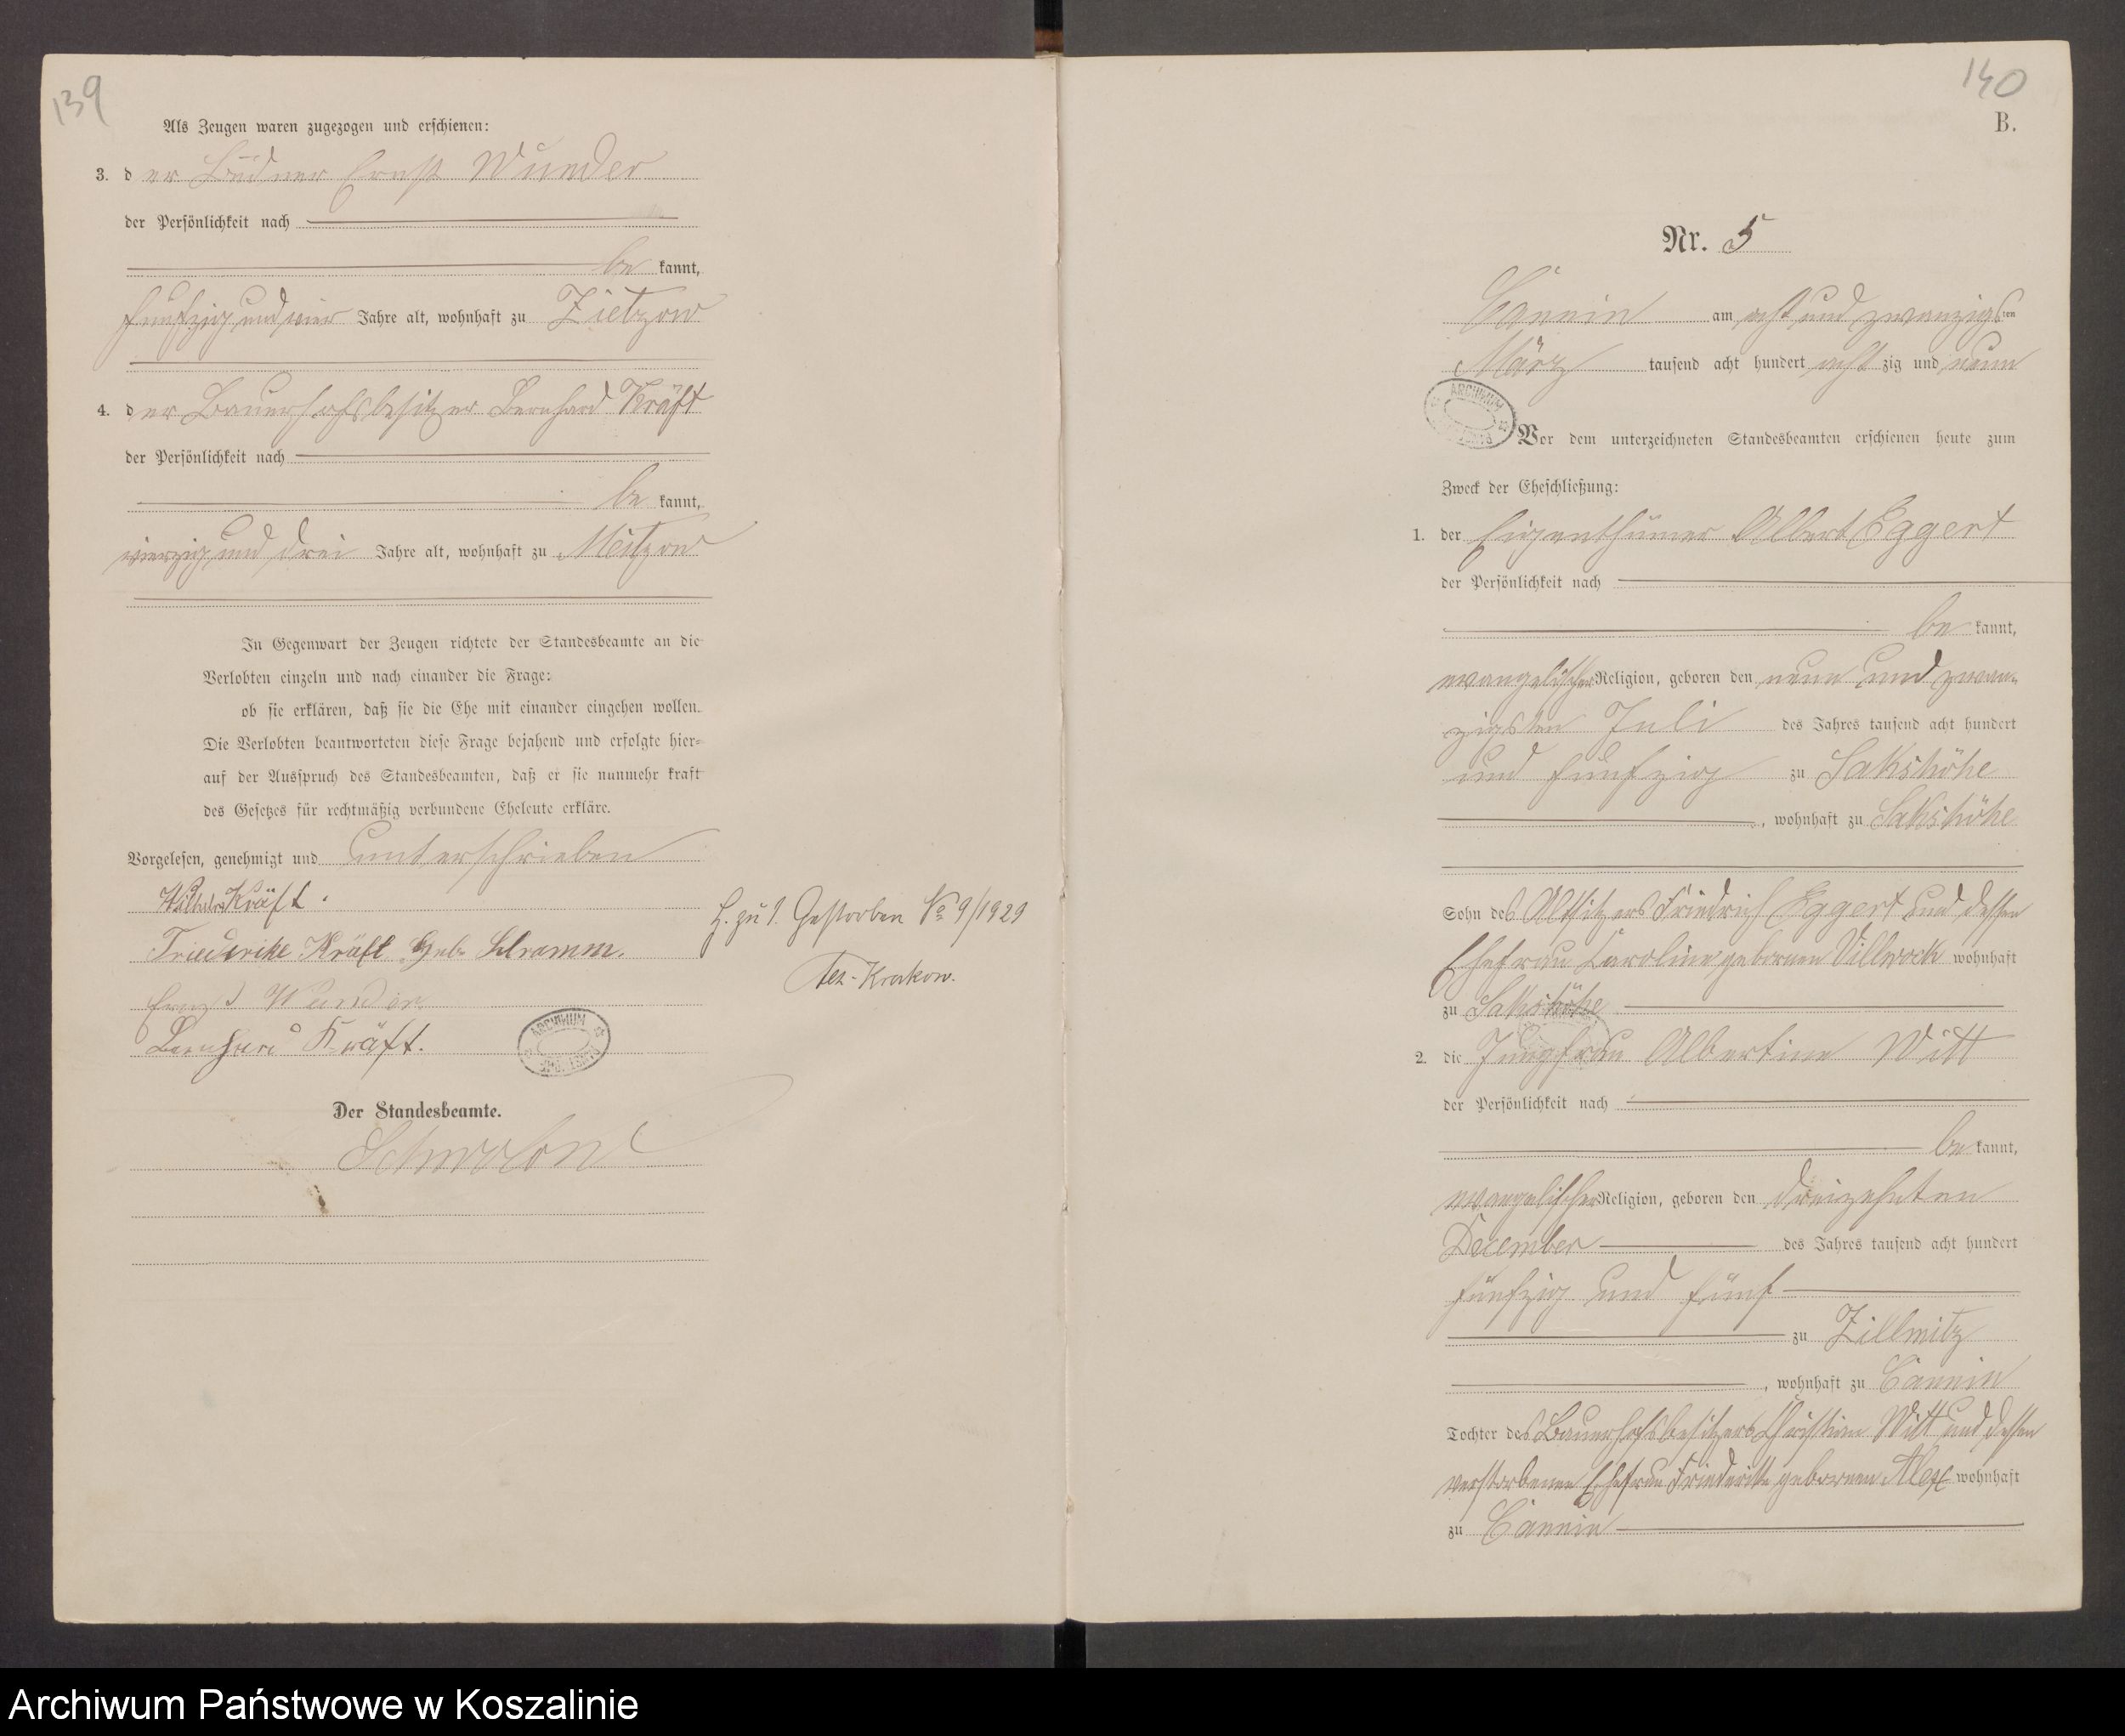 139
Als Zeugen waren zugezogen und erschienen:
3. der Büdner Ernst Wunder
der Persönlichkeit nach
be kannt,
fünfzig und vier Jahre alt, wohnhaft zu Zietzow
4. der Bauerhofsbesitzer Bernhard Kräft
der Persönlichkeit nach
be kannt,
vierzig und drei Jahre alt, wohnhaft zu Meitzow
In Gegenwart der Zeugen richtete der Standesbeamte an die
Verlobten einzeln und nach einander die Frage:
ob sie erklären, daß sie die Ehe mit einander eingehen wollen.
Die Verlobten beantworteten diese Frage bejahend und erfolgte hier=
auf der Ausspruch des Standesbeamten, daß er sie nunmehr kraft
des Gesetzes für rechtmäßig verbundene Eheleute erkläre.
Vorgelesen, genehmigt und unterschrieben
Wilhelm Kräft.
Friederike Kräft geb. Schramm.
Ernst Wunder
Bernhard Kräft.
H. zu 1. Gestorben No 9/1929
Krakow.
ARCHIWUM
Der Standesbeamte.
140
B.
Nr. 5
Cannin am acht und zwanzigsten
März tausend acht hundert acht zig und neun
ARCHIWUM
Vor dem unterzeichneten Standesbeamten erschienen heute zum
Zweck der Eheschließung:
1. der Eigenthümer Albert Eggert
der Persönlichkeit nach
be kannt,
evangelischer Religion, geboren den neun und zwan-
zigsten Juli des Jahres tausend acht hundert
und fünfzig zu Sakshöhe
, wohnhaft zu Sakshöhe
Sohn des Altsitzers Friedrich Eggert und dessen
Ehefrau Caroline gebornen Villwock wohnhaft
zu Sakshöhe
2. die Jungfrau Albertine Witt
der Persönlichkeit nach
be kannt,
evangelischer Religion, geboren den dreizehnten
December des Jahres tausend acht hundert
fünfzig und fünf
zu Zillmitz
, wohnhaft zu Cannin
Tochter des Bauerhofsbesitzers Christian Witt und dessen
verstorbenen Ehefrau Friederike gebornen wohnhaft
zu Cannin
Archiwum Państwowe w Koszalinie